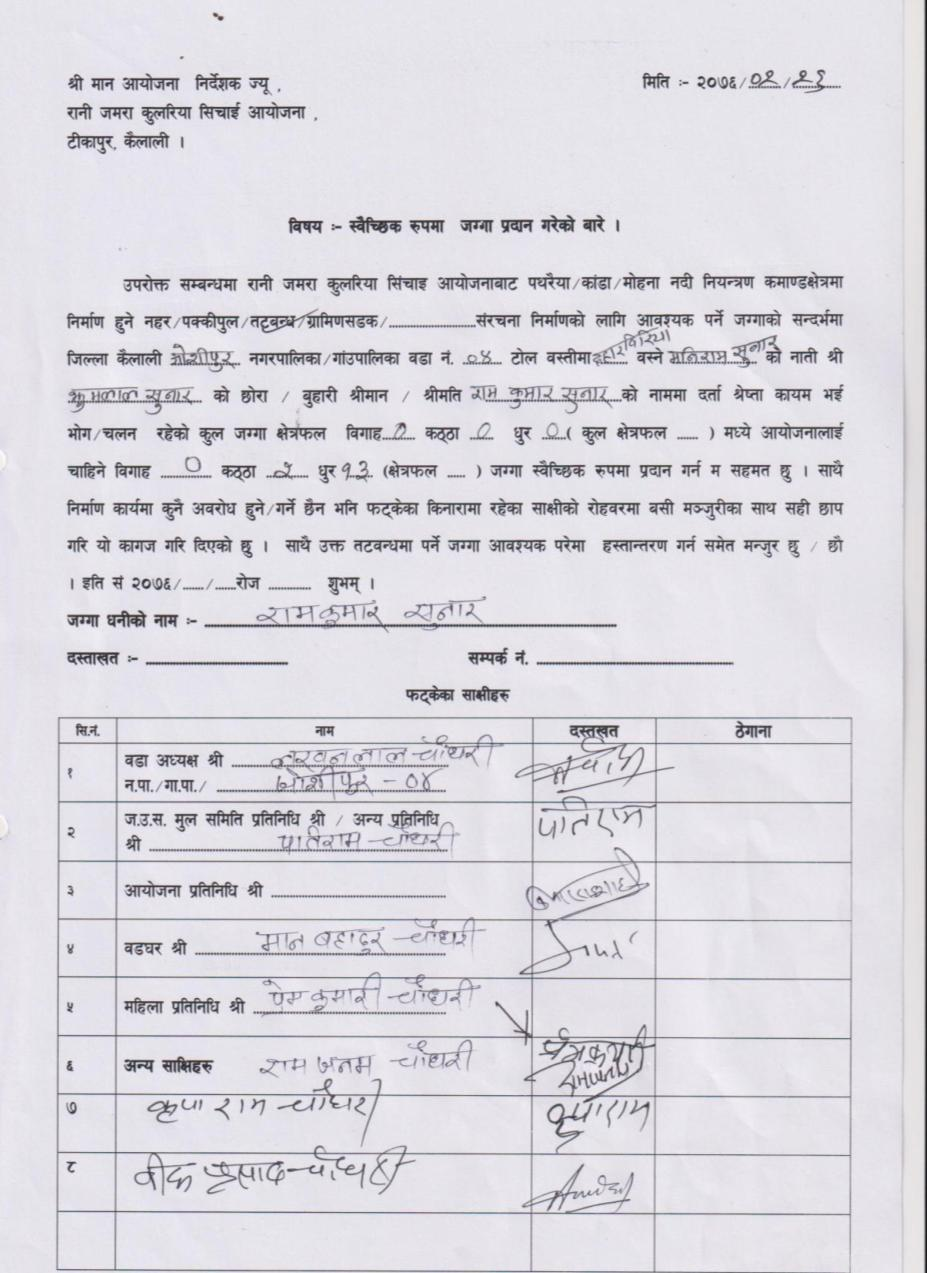 श्री मान आयोजना निर्देशक ज्यू , मिति :- २०७६/०२/२६
रानी जमरा कुलरिया सिचाई आयोजना ,
टीकापुर, कैलाली ।
विषय :- स्वैच्छिक रुपमा जग्गा प्रदान गरेको बारे ।
उपरोक्त सम्बन्धमा रानी जमरा कुलरिया सिंचाइ आयोजनाबाट पथरैया/कांडा/मोहना नदी नियन्त्रण कमाण्डक्षेत्रमा
निर्माण हुने नहर/पक्कीपुल/तटबन्ध/ग्रामिणसडक/....................संरचना निर्माणको लागि आवश्यक पर्ने जग्गाको सन्दर्भमा
जिल्ला कैलाली जोशीपुर नगरपालिका/गांउपालिका वडा नं. ०४ टोल वस्तीमा वस्ने मनिराम सुनार को नाती श्री
झुमलाल सुनार को छोरा / बुहारी श्रीमान / श्रीमति राम कुमार सुनार को नाममा दर्ता श्रेष्ता कायम भई
भोग/चलन रहेको कुल जग्गा क्षेत्रफल विगाह 0 कठ्ठा 0 धुर 0 ( कुल क्षेत्रफल ...... ) मध्ये आयोजनालाई
चाहिने विगाह 0 कठ्ठा २ धुर १३ (क्षेत्रफल ..... ) जग्गा स्वैच्छिक रुपमा प्रदान गर्न म सहमत छु । साथै
निर्माण कार्यमा कुनै अवरोध हुने/गर्ने छैन भनि फट्केका किनारामा रहेका साक्षीको रोहवरमा बसी मञ्जुरीका साथ सही छाप
गरि यो कागज गरि दिएको छु । साथै उक्त तटवन्धमा पर्ने जग्गा आवश्यक परेमा हस्तान्तरण गर्न समेत मन्जुर छु / छौ
। इति सं २०७६/....../......रोज ............ शुभम् ।
जग्गा धनीको नाम :- रामकुमार सुनार
दस्ताखत :- .................... सम्पर्क नं. ....................
फट्केका साक्षीहरु
सि.नं. नाम दस्तखत ठेगाना
१ वडा अध्यक्ष श्री लखनलाल चौधरी
न.पा./गा.पा./ जोशीपुर - ०४
२ ज.उ.स. मुल समिति प्रतिनिधि श्री / अन्य प्रतिनिधि
श्री पातिराम चौधरी पातिराम
३ आयोजना प्रतिनिधि श्री ....................
४ वडघर श्री मान बहादुर चौधरी
५ महिला प्रतिनिधि श्री प्रेम कुमारी चौधरी
६ अन्य साक्षिहरु राम जनम चौधरी प्रेमकुमारी
७ कृपा राम चौधरी कृपाराम
८ प्रसाद चौधरी